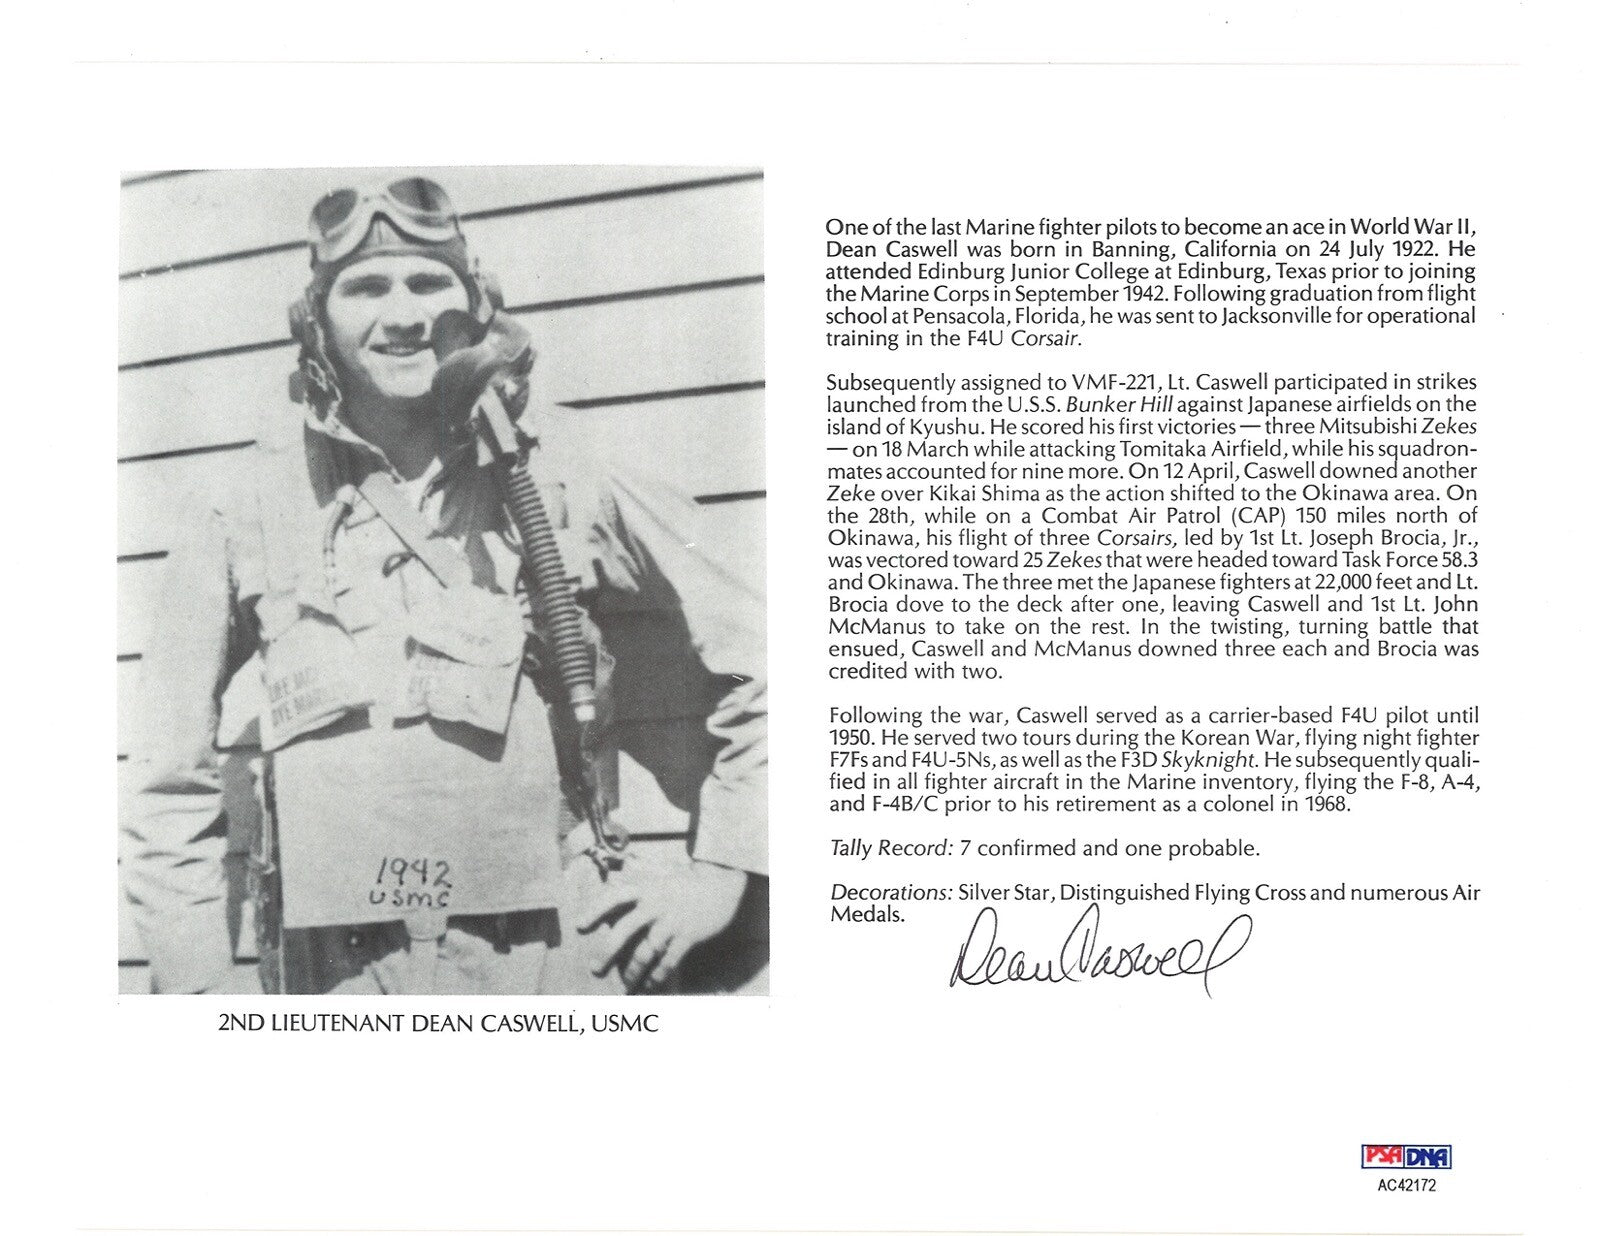 One of the last Marine fighter pilots to become an ace in World War II,
Dean Caswell was born in Banning, California on 24 July 1922. He
attended Edinburg Junior College at Edinburg, Texas prior to joining
the Marine Corps in September 1942. Following graduation from flight
school at Pensacola, Florida, he was sent to Jacksonville for operational
training in the F4U Corsair.
Subsequently assigned to VMF-221, Lt. Caswell participated in strikes
launched from the U.S.S. Bunker Hill against Japanese airfields on the
island of Kyushu. He scored his first victories — three Mitsubishi Zekes
— on 18 March while attacking Tomitaka Airfield, while his squadron-
mates accounted for nine more. On 12 April, Caswell downed another
Zeke over Kikai Shima as the action shifted to the Okinawa area. On
the 28th, while on a Combat Air Patrol (CAP) 150 miles north of
Okinawa, his flight of three Corsairs, led by 1st Lt. Joseph Brocia, Jr.,
was vectored toward 25 Zekes that were headed toward Task Force 58.3
and Okinawa. The three met the Japanese fighters at 22,000 feet and Lt.
Brocia dove to the deck after one, leaving Caswell and 1st Lt. John
McManus to take on the rest. In the twisting, turning battle that
ensued, Caswell and McManus downed three each and Brocia was
credited with two.
Following the war, Caswell served as a carrier-based F4U pilot until
1950. He served two tours during the Korean War, flying night fighter
F7Fs and F4U-5Ns, as well as the F3D Skyknight. He subsequently quali-
fied in all fighter aircraft in the Marine inventory, flying the F-8, A-4,
and F-4B/C prior to his retirement as a colonel in 1968.
Tally Record: 7 confirmed and one probable.
Decorations: Silver Star, Distinguished Flying Cross and numerous Air
Medals.
Dean Caswell
1942
USMC
2ND LIEUTENANT DEAN CASWELL, USMC
PSA DNA
AC42172